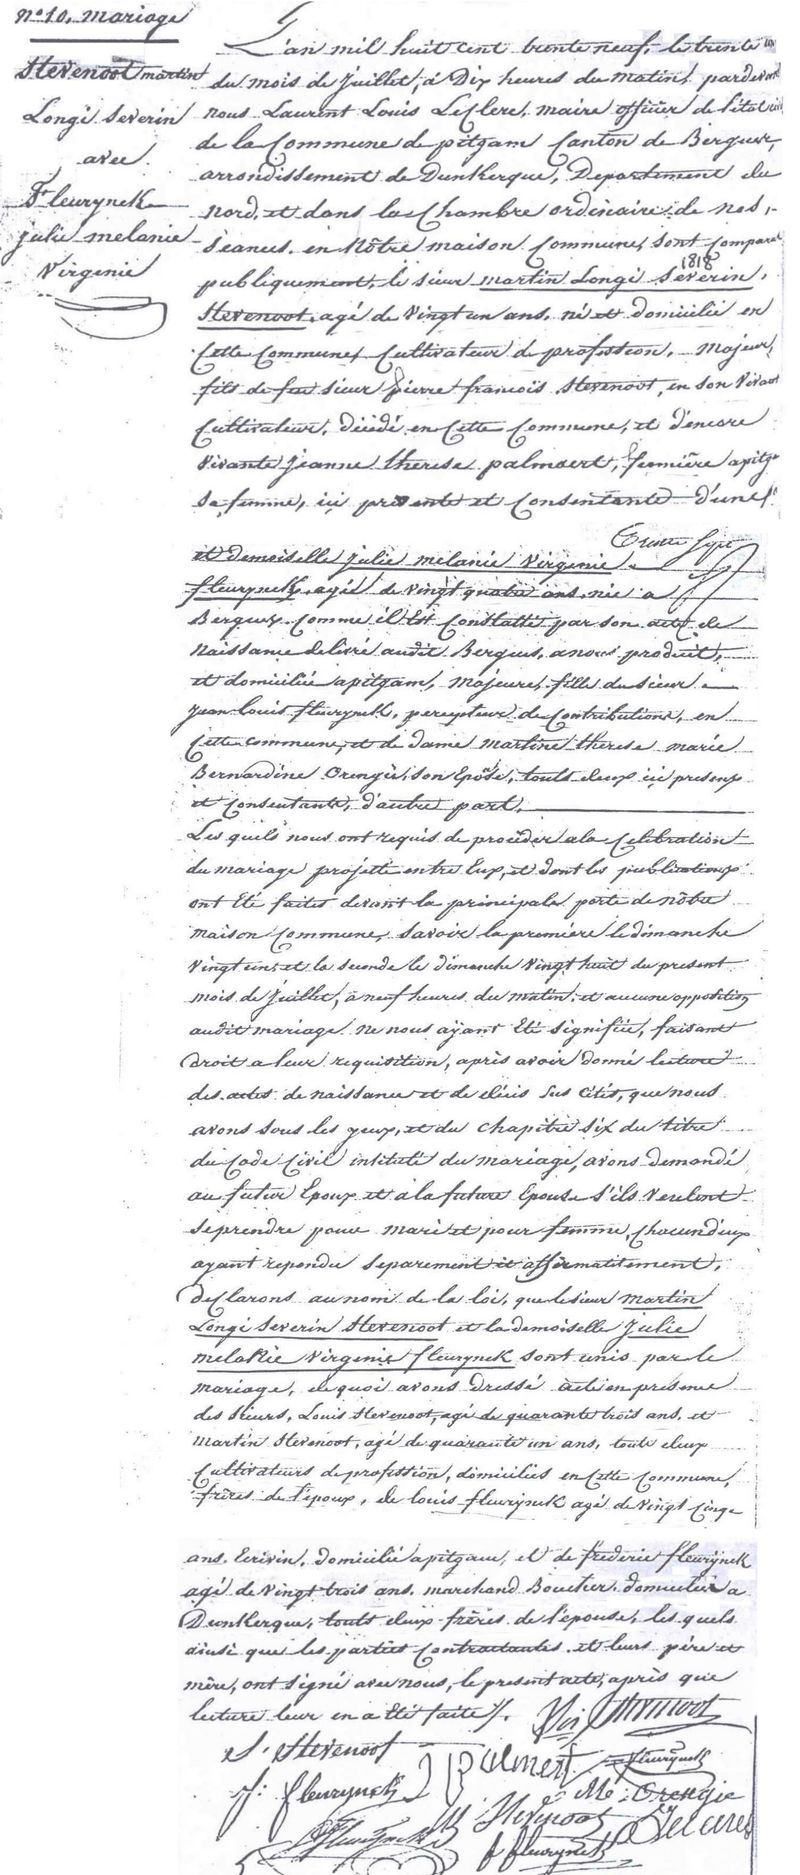 n° 10. mariage
Stevenoot martin
Longi Severin
avec
Fleurynck
julie melanie
Virginie
L'an mil huit cent trente neuf, le trente
du mois de Juillet, à Dix heures du matin, pardevant
nous Laurent Louis LeClerc, maire officier de l'état civil
de la Commune de pitgam Canton de Bergues,
arrondissement de Dunkerque, Departement du
nord, et dans la Chambre ordinaire de nos
séances. en Nôtre maison Commune, sont comparu
1818
publiquement, le sieur martin Longi Severin,
Stevenoot, agé de Vingt un ans, né et domicilié en
Cette Commune, Cultivateur de profession, Majeur,
fils de feu sieur pierre francois Stevenoot, en son Vivant
Cultivateur, décédé en Cette Commune, et d'encore
Vivante Jeanne therese palmaert, fermière a pitgam
sa femme, ici présente et Consentante d'une
et demoiselle julie melanie Virginie
fleurynck, agée de vingt quatre ans, née a
Bergues, Comme il Est Constatté par son acte de
Naissance delivré audit Bergues, a nous produit,
et domiciliée a pitgam, Majeure, fille du Sieur
jean Louis fleurynck, percepteur de Contributions, en
Cette commune, et de dame martine therese marie
Bernardine Crengie, son Epôse, touts deux ici presens
et Consentants, d'autre part,
Les quels nous ont requis de procéder a la Celebration
du mariage projetté entre Eux, et dont les publications
ont Eté faites devant la principale porte de nôtre
maison Commune, Savoir la première le dimanche
Vingt un, et la seconde le dimanche Vingt huit du present
mois de Juillet, à neuf heures du matin, et aucune opposition
audit mariage ne nous ayant Eté signifiée, faisant
Droit a leur requisition, après avoir donné lecture
des actes de naissance et de décès sus cités, que nous
avons sous les yeux, et du chapitre six du titre
du Code Civil intitulé du mariage, avons demandé
au futur Epoux et à la future Epouse s'ils Veulent
se prendre pour mari et pour femme, Chacun d'eux
ayant repondu separement et affirmatitement,
declarons au nom de la loi, que le sieur martin
Longi Severin Stevenoot et la demoiselle Julie
melanie Virginie fleurynck sont unis par le
mariage, de quoi avons dressé acte en présence
des Sieurs, Louis Stevenoot, agé de quarante trois ans, et
Martin Stevenoot, agé de quarante un ans, touts deux
Cultivateurs de profession, domiciliés en Cette Commune,
frères de l'époux, de louis fleurynck agé de Vingt Cinq
ans, Ecrivin, domicilié a pitgam, et de frederic fleurynck
agé de Vingt trois ans, marchand Boucher domicilié a
Dunkerque, touts deux frères de l'épouse, les quels
ainsi que les parties Contractantes et leurs père et
mère, ont signé avec nous, le present acte, après que
lecture leur en a Eté faite
Stevenoot
S. Stevenoot
palmert
fleurynck
J: fleurynck
Crengie
fleurynck
Stevenoot
LeClerc
f fleurynck